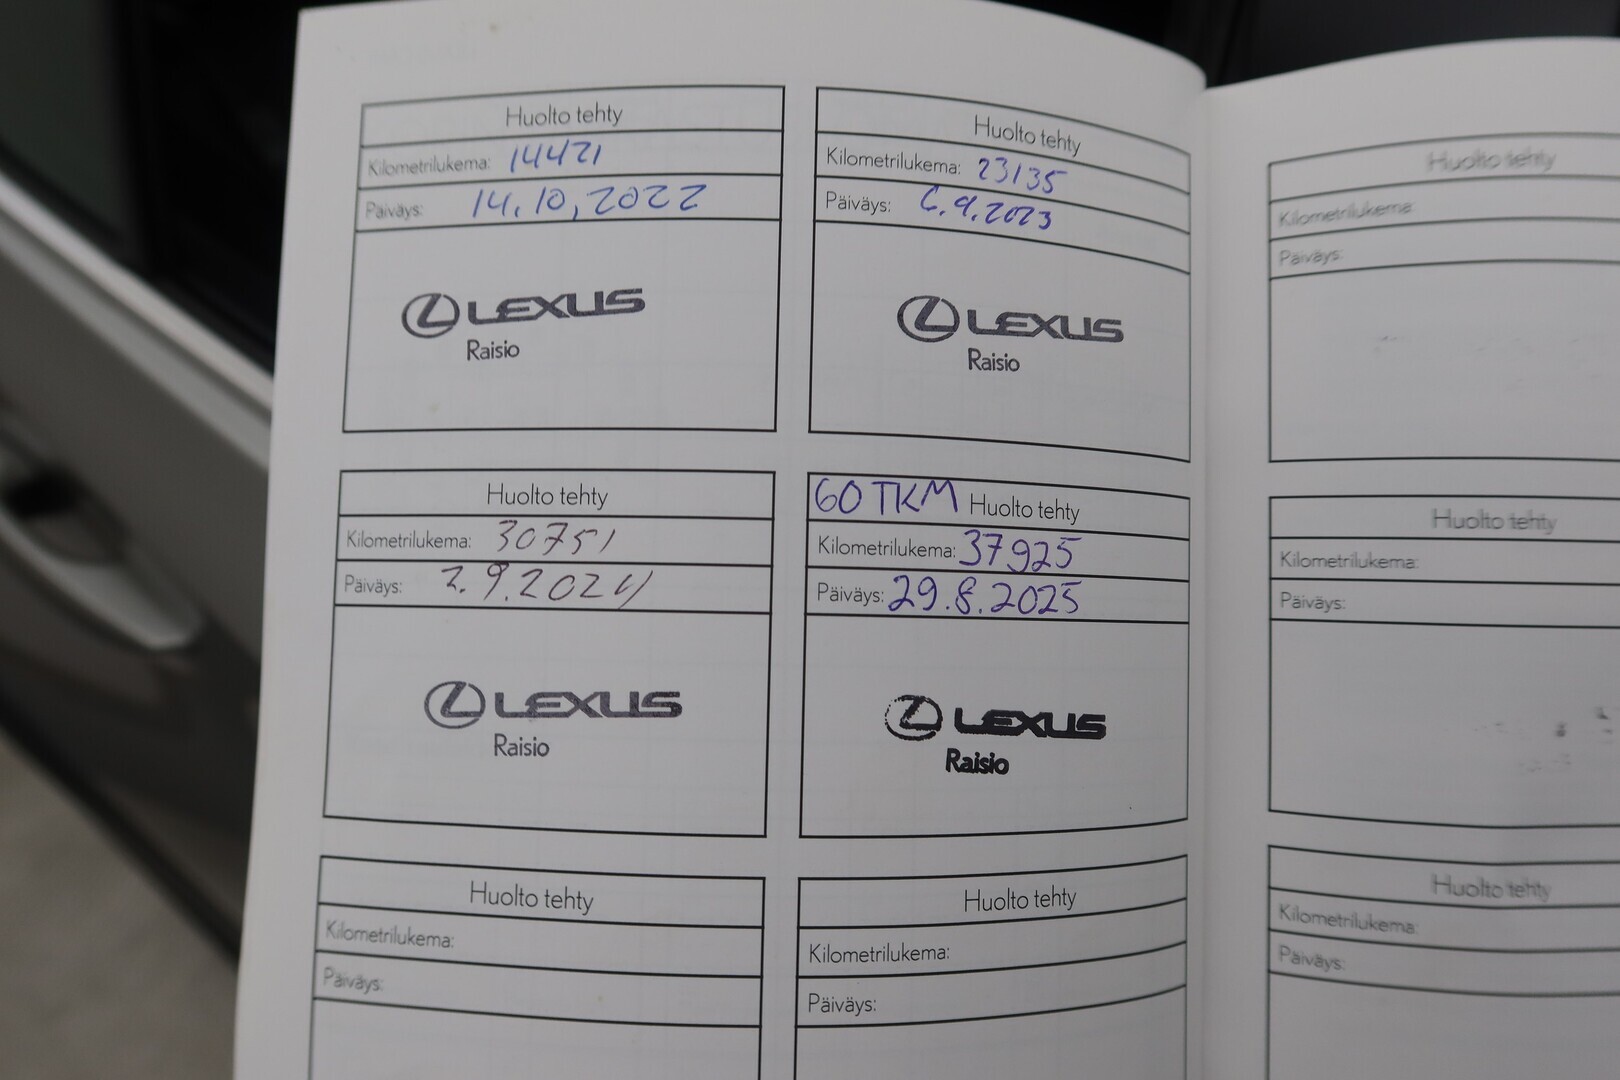 Huolto tehty
Kilometrilukema: 14421
Päiväys: 14.10.2022
LEXUS
Raisio
Huolto tehty
Kilometrilukema: 23135
Päiväys: 6.9.2023
LEXUS
Raisio
Huolto tehty
Kilometrilukema: 30751
Päiväys: 2.9.2024
LEXUS
Raisio
60 TKM Huolto tehty
Kilometrilukema: 37925
Päiväys: 29.8.2025
LEXUS
Raisio
Huolto tehty
Kilometrilukema:
Päiväys:
Huolto tehty
Kilometrilukema:
Päiväys:
Huolto tehty
Kilometrilukema:
Päiväys:
Huolto tehty
Kilometrilukema:
Päiväys:
Huolto tehty
Kilometrilukema:
Päiväys: